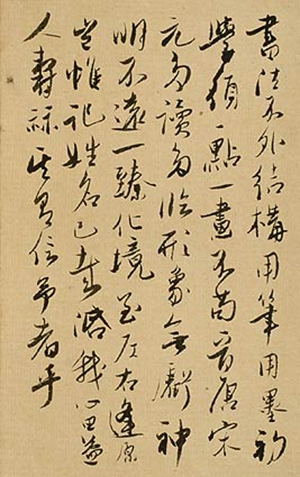 書法不外結構用筆用墨初
學須一點一畫不苟晉唐宋
元多讀多臨形象無虧神
明不遠一臻化境至左右逢原
豈惟記姓名已哉我心田益
人壽祿其信予者乎